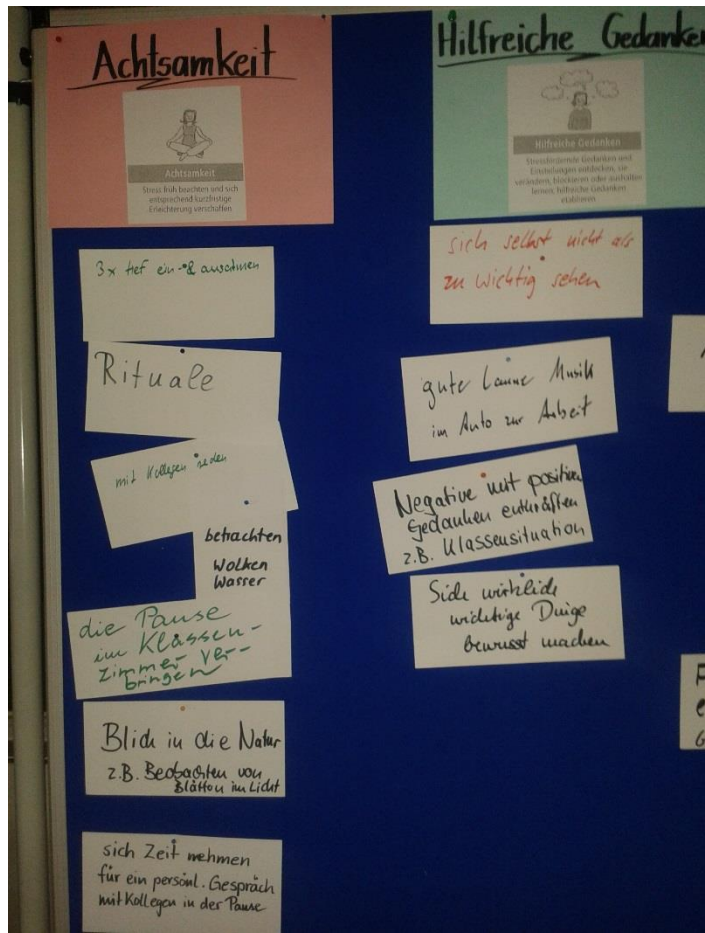 Achtsamkeit
Achtsamkeit
Stress früh beachten und sich
entsprechend kurzfristige
Erleichterung verschaffen
3x tief ein- & ausatmen
Rituale
mit Kollegen reden
betrachten
Wolken
Wasser
die Pause
im Klassen-
zimmer ver-
bringen
Blick in die Natur
z.B. Beobachten von
Blättern im Licht
sich Zeit nehmen
für ein persönl. Gespräch
mit Kollegen in der Pause
Hilfreiche Gedanken
Hilfreiche Gedanken
Stressfördernde Gedanken und
Einstellungen entdecken, sie
verändern, blockieren oder aushalten
lernen, hilfreiche Gedanken
etablieren
sich selbst nicht als
zu wichtig sehen
gute Laune Musik
im Auto zur Arbeit
Negative mit positiven
Gedanken entkräften
z.B. Klassensituation
Sich wirklich
wichtige Dinge
bewusst machen